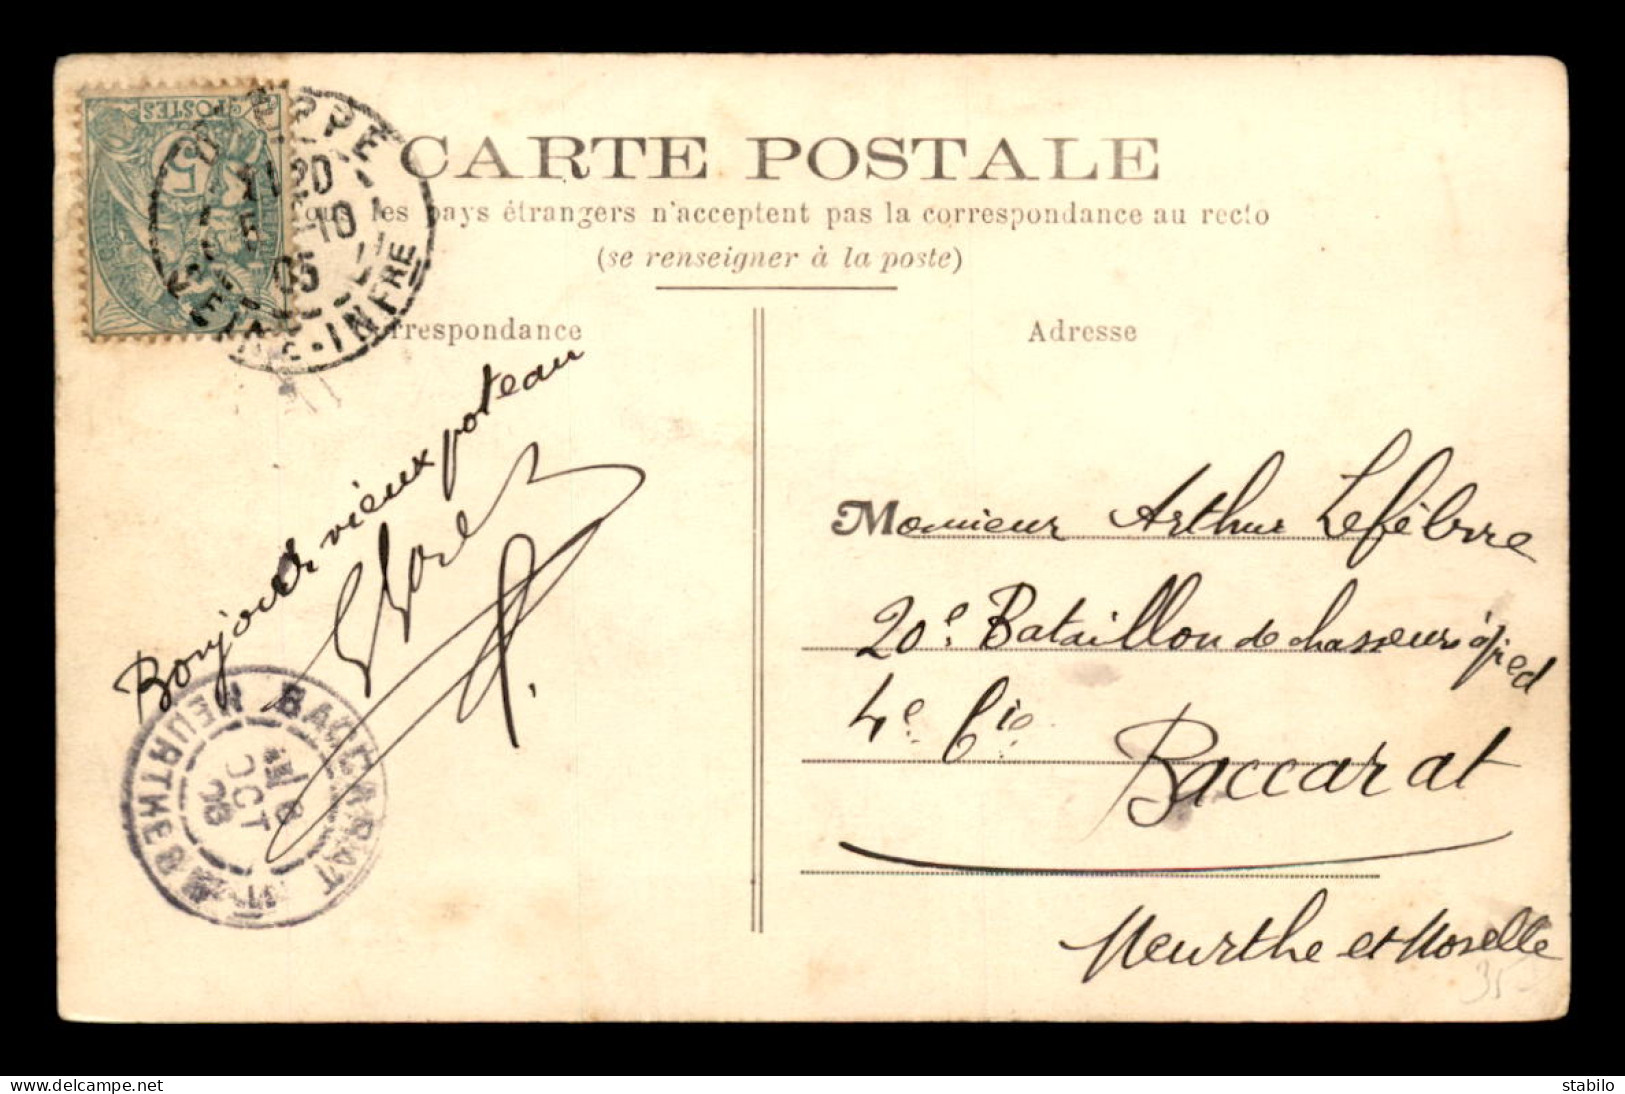 POSTES
5
DIEPPE
20
-10
05
INFRE
CARTE POSTALE
les pays étrangers n'acceptent pas la correspondance au recto
(se renseigner à la poste)
respondance
Adresse
Bonjour vieux poteau
Monsieur Arthur Lefèbvre
20e. Bataillon de chasseurs à pied
4e. Cie.
Baccarat
Meurthe et Moselle
BACCARAT
MEURTHE
6
OCT
35
delcampe.net
stabilo